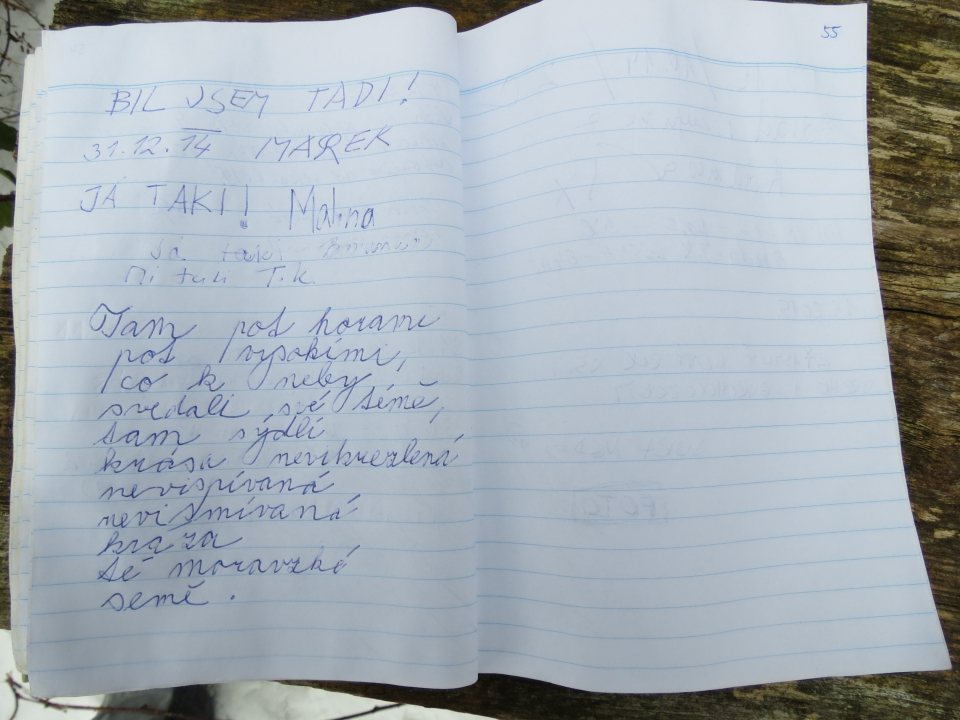 55
BIL JSEM TADI!
31.12.14 MAREK
JÁ TAKI! Malina
Já taki
Mi taki T.K.
Tam pot horami
pot vysokími,
co k neby
svedali své témě,
tam sýdlí
krása nevikrezlená
nevispívaná
nevismívaná
kraza
té moravzké
semě.